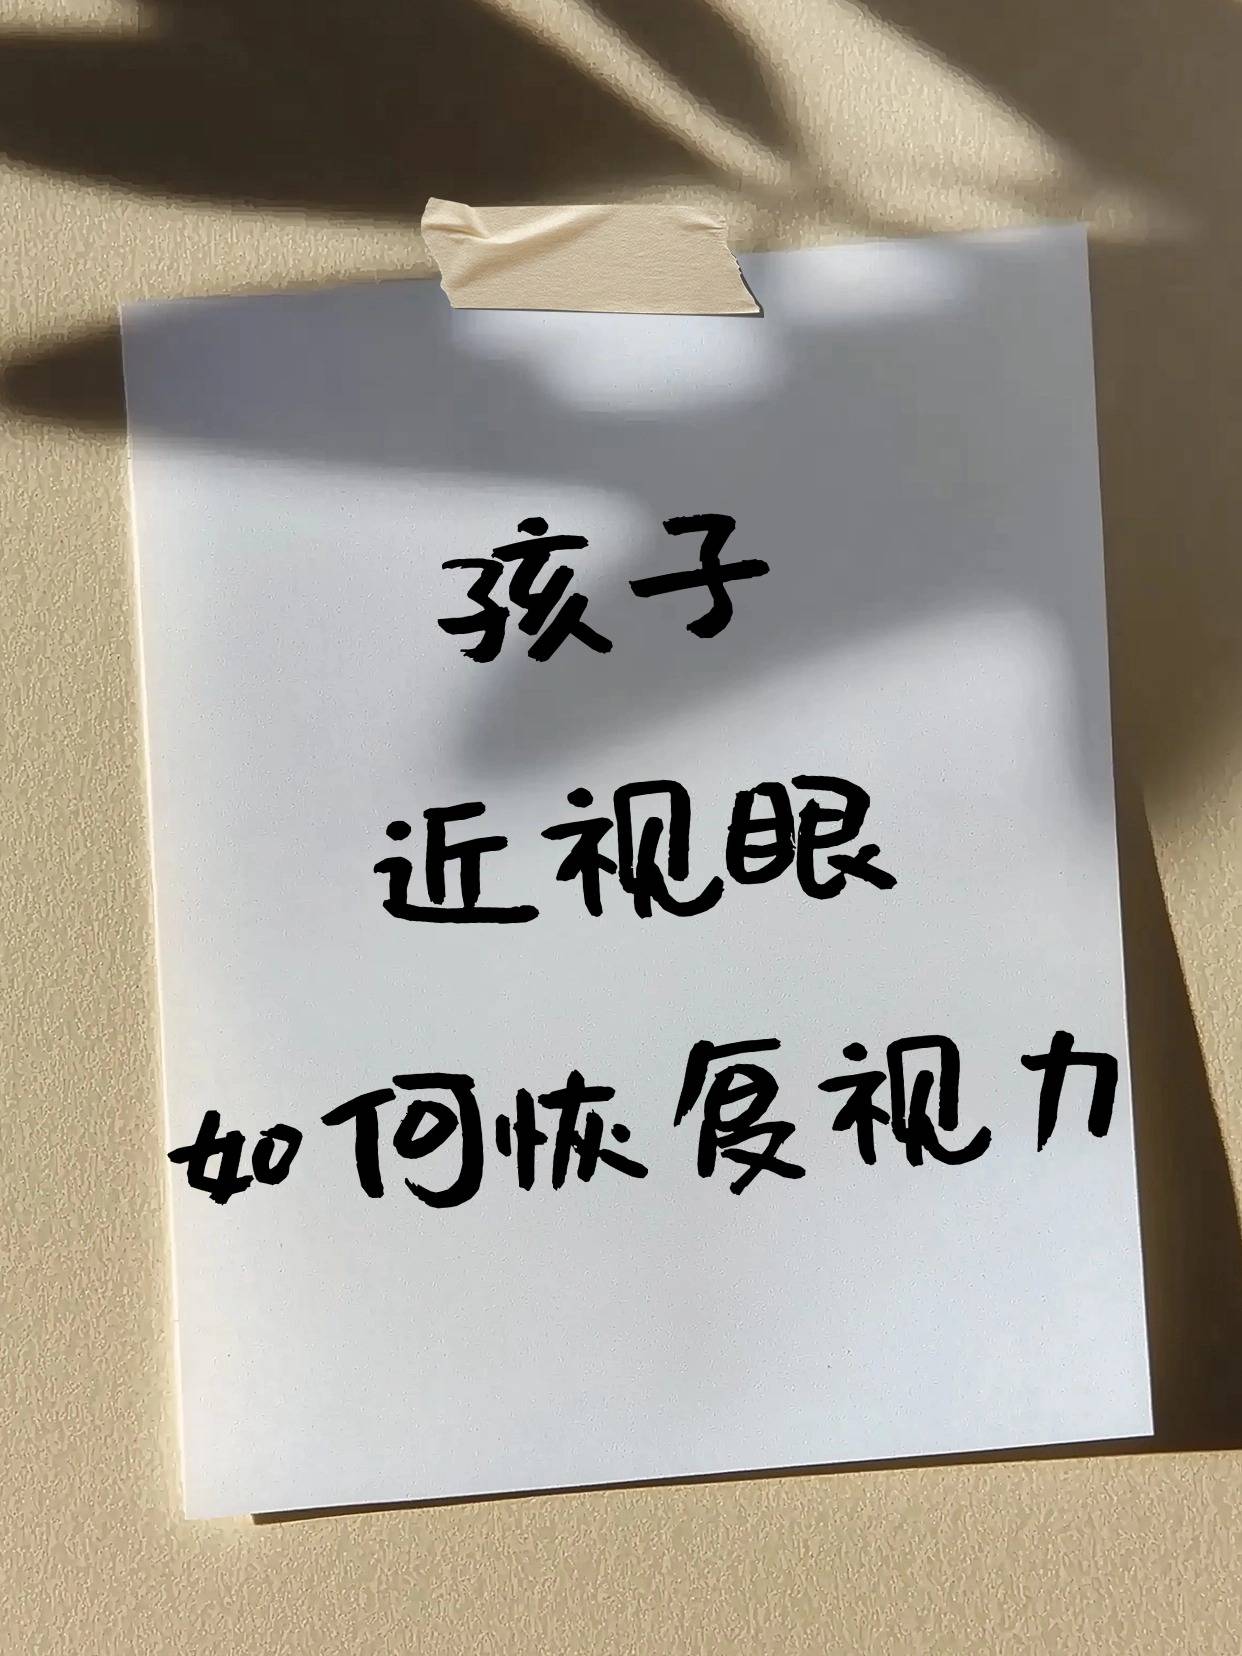 孩子
近视眼
如何恢复视力